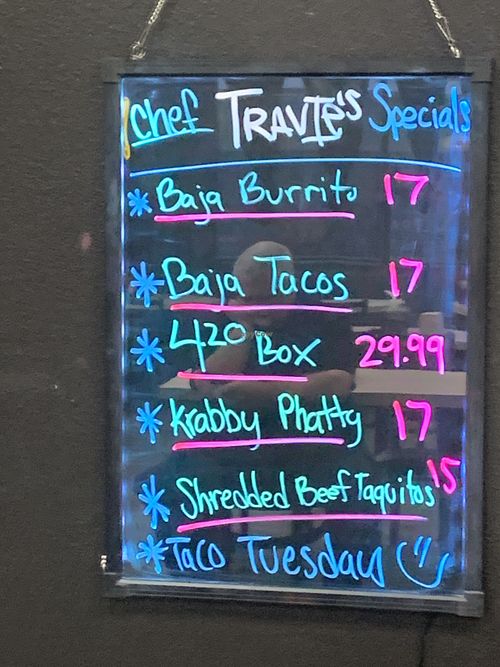 Chef TRAVIE's Specials
* Baja Burrito 17
* Baja Tacos 17
* 420 Box 29.99
* Krabby Phatty 17
* Shredded Beef Taquitos 15
* Taco Tuesday